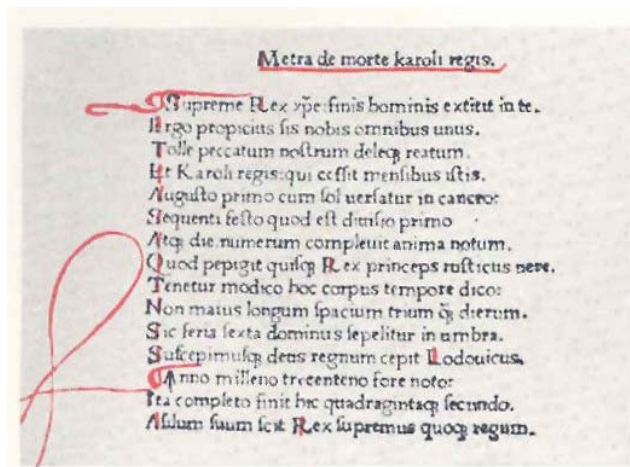 Metra de morte karoli regis.
Supreme Rex xp̄e: finis hominis extitit in te.
Ergo propicius sis nobis omnibus unus.
Tolle peccatum nostrum deleqꝫ reatum.
Et Karoli regis: qui cessit mensibus istis.
Augusto primo cum sol uersatur in cancro:
Sequenti festo quod est diuisio primo
Atqꝫ die. numerum compleuit anima notum.
Quod pepigit quisqꝫ Rex princeps rusticus nere.
Tenetur modico hoc corpus tempore dico:
Non maius longum spacium trium qꝫ̄ dierum.
Sic feria sexta dominus sepelitur in umbra.
Suscepimusqꝫ deus regnum cepit Lodouicus.
Anno milleno trecenteno fore noto:
Ita completo finit hic quadragintaqꝫ secundo.
suum scit Rex supremus quoqꝫ regum.